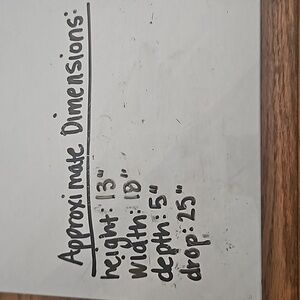 Approximate Dimensions:
height: 13"
width: 10"
depth: 5"
drop: 25"